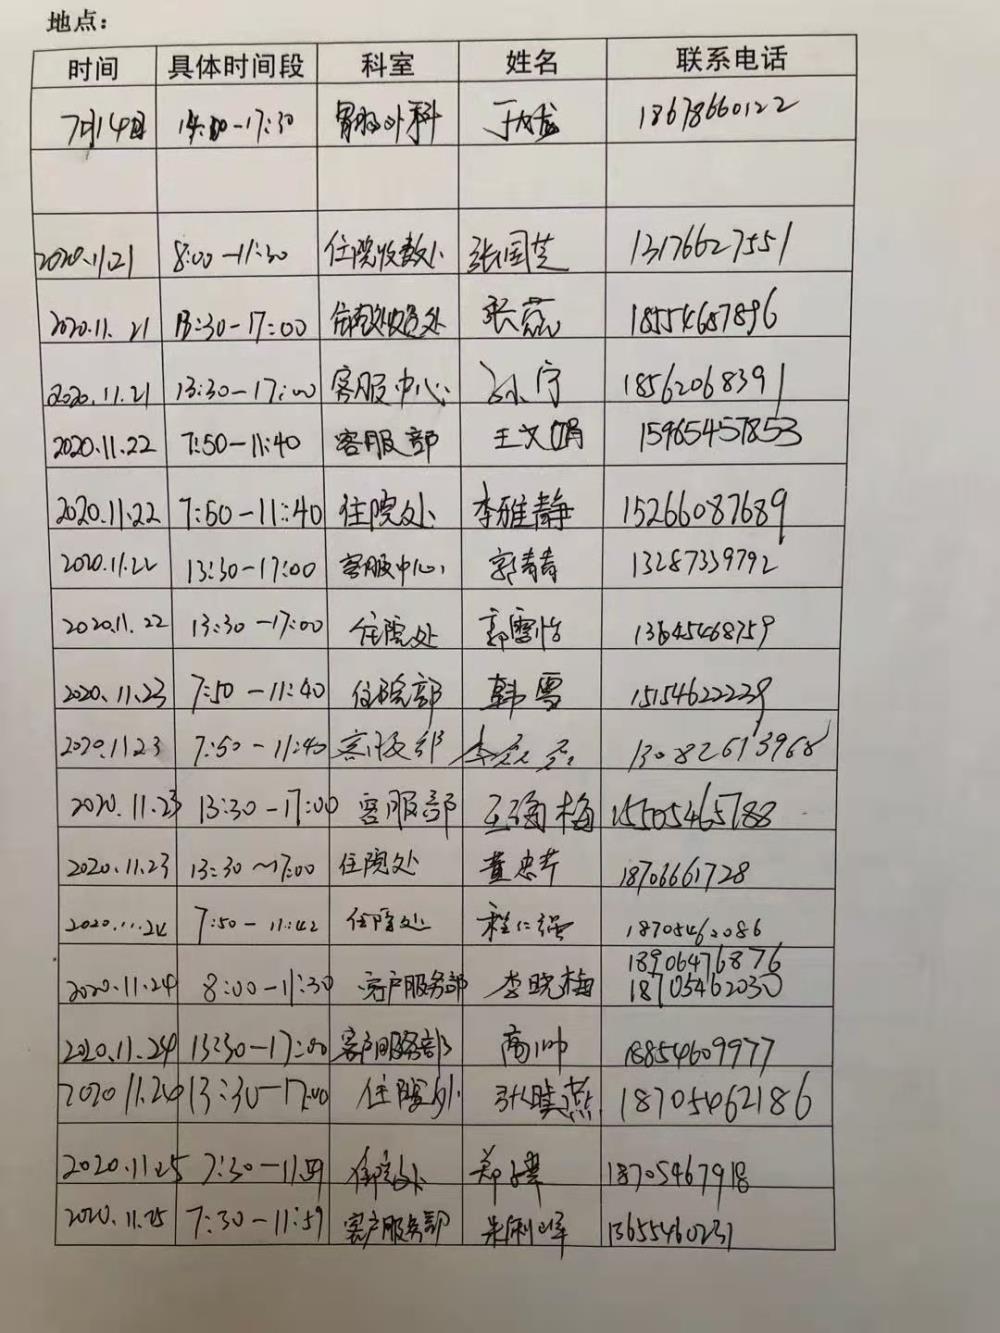 地点：
时间 具体时间段 科室 姓名 联系电话
7月14日 14:00-17:30 胃肠外科 18678660122
2020.11.21 8:00-11:30 住院收费处 张国芝 13176627551
2020.11.21 13:30-17:00 张蕊 18554687896
2020.11.21 13:30-17:00 客服中心 孙宁 18562068391
2020.11.22 7:50-11:40 客服部 王文娟 15965457853
2020.11.22 7:50-11:40 住院处 李雅静 15266087689
2020.11.22 13:30-17:00 客服中心 郭青青 13287339792
2020.11.22 13:30-17:00 住院处 郭雪怡 13645468759
2020.11.23 7:50-11:40 住院部 韩雪 15154622239
2020.11.23 7:50-11:40 客服部 13082613968
2020.11.23 13:30-17:00 客服部 梅 15505465788
2020.11.23 13:30~17:00 住院处 黄忠芹 18706661728
7:50-11:42 住院处 程仁强 18705462086
18906476876
2020.11.24 8:00-11:30 客户服务部 李晓梅 18705462030
2020.11.24 13:30-17:00 客户服务部 高帅 18854609977
2020.11.24 13:30-17:00 住院处 18705462186
2020.11.25 7:30-11:59 住院处 郑 18705467918
2020.11.25 7:30-11:59 客户服务部 朱俐峰 13655460231